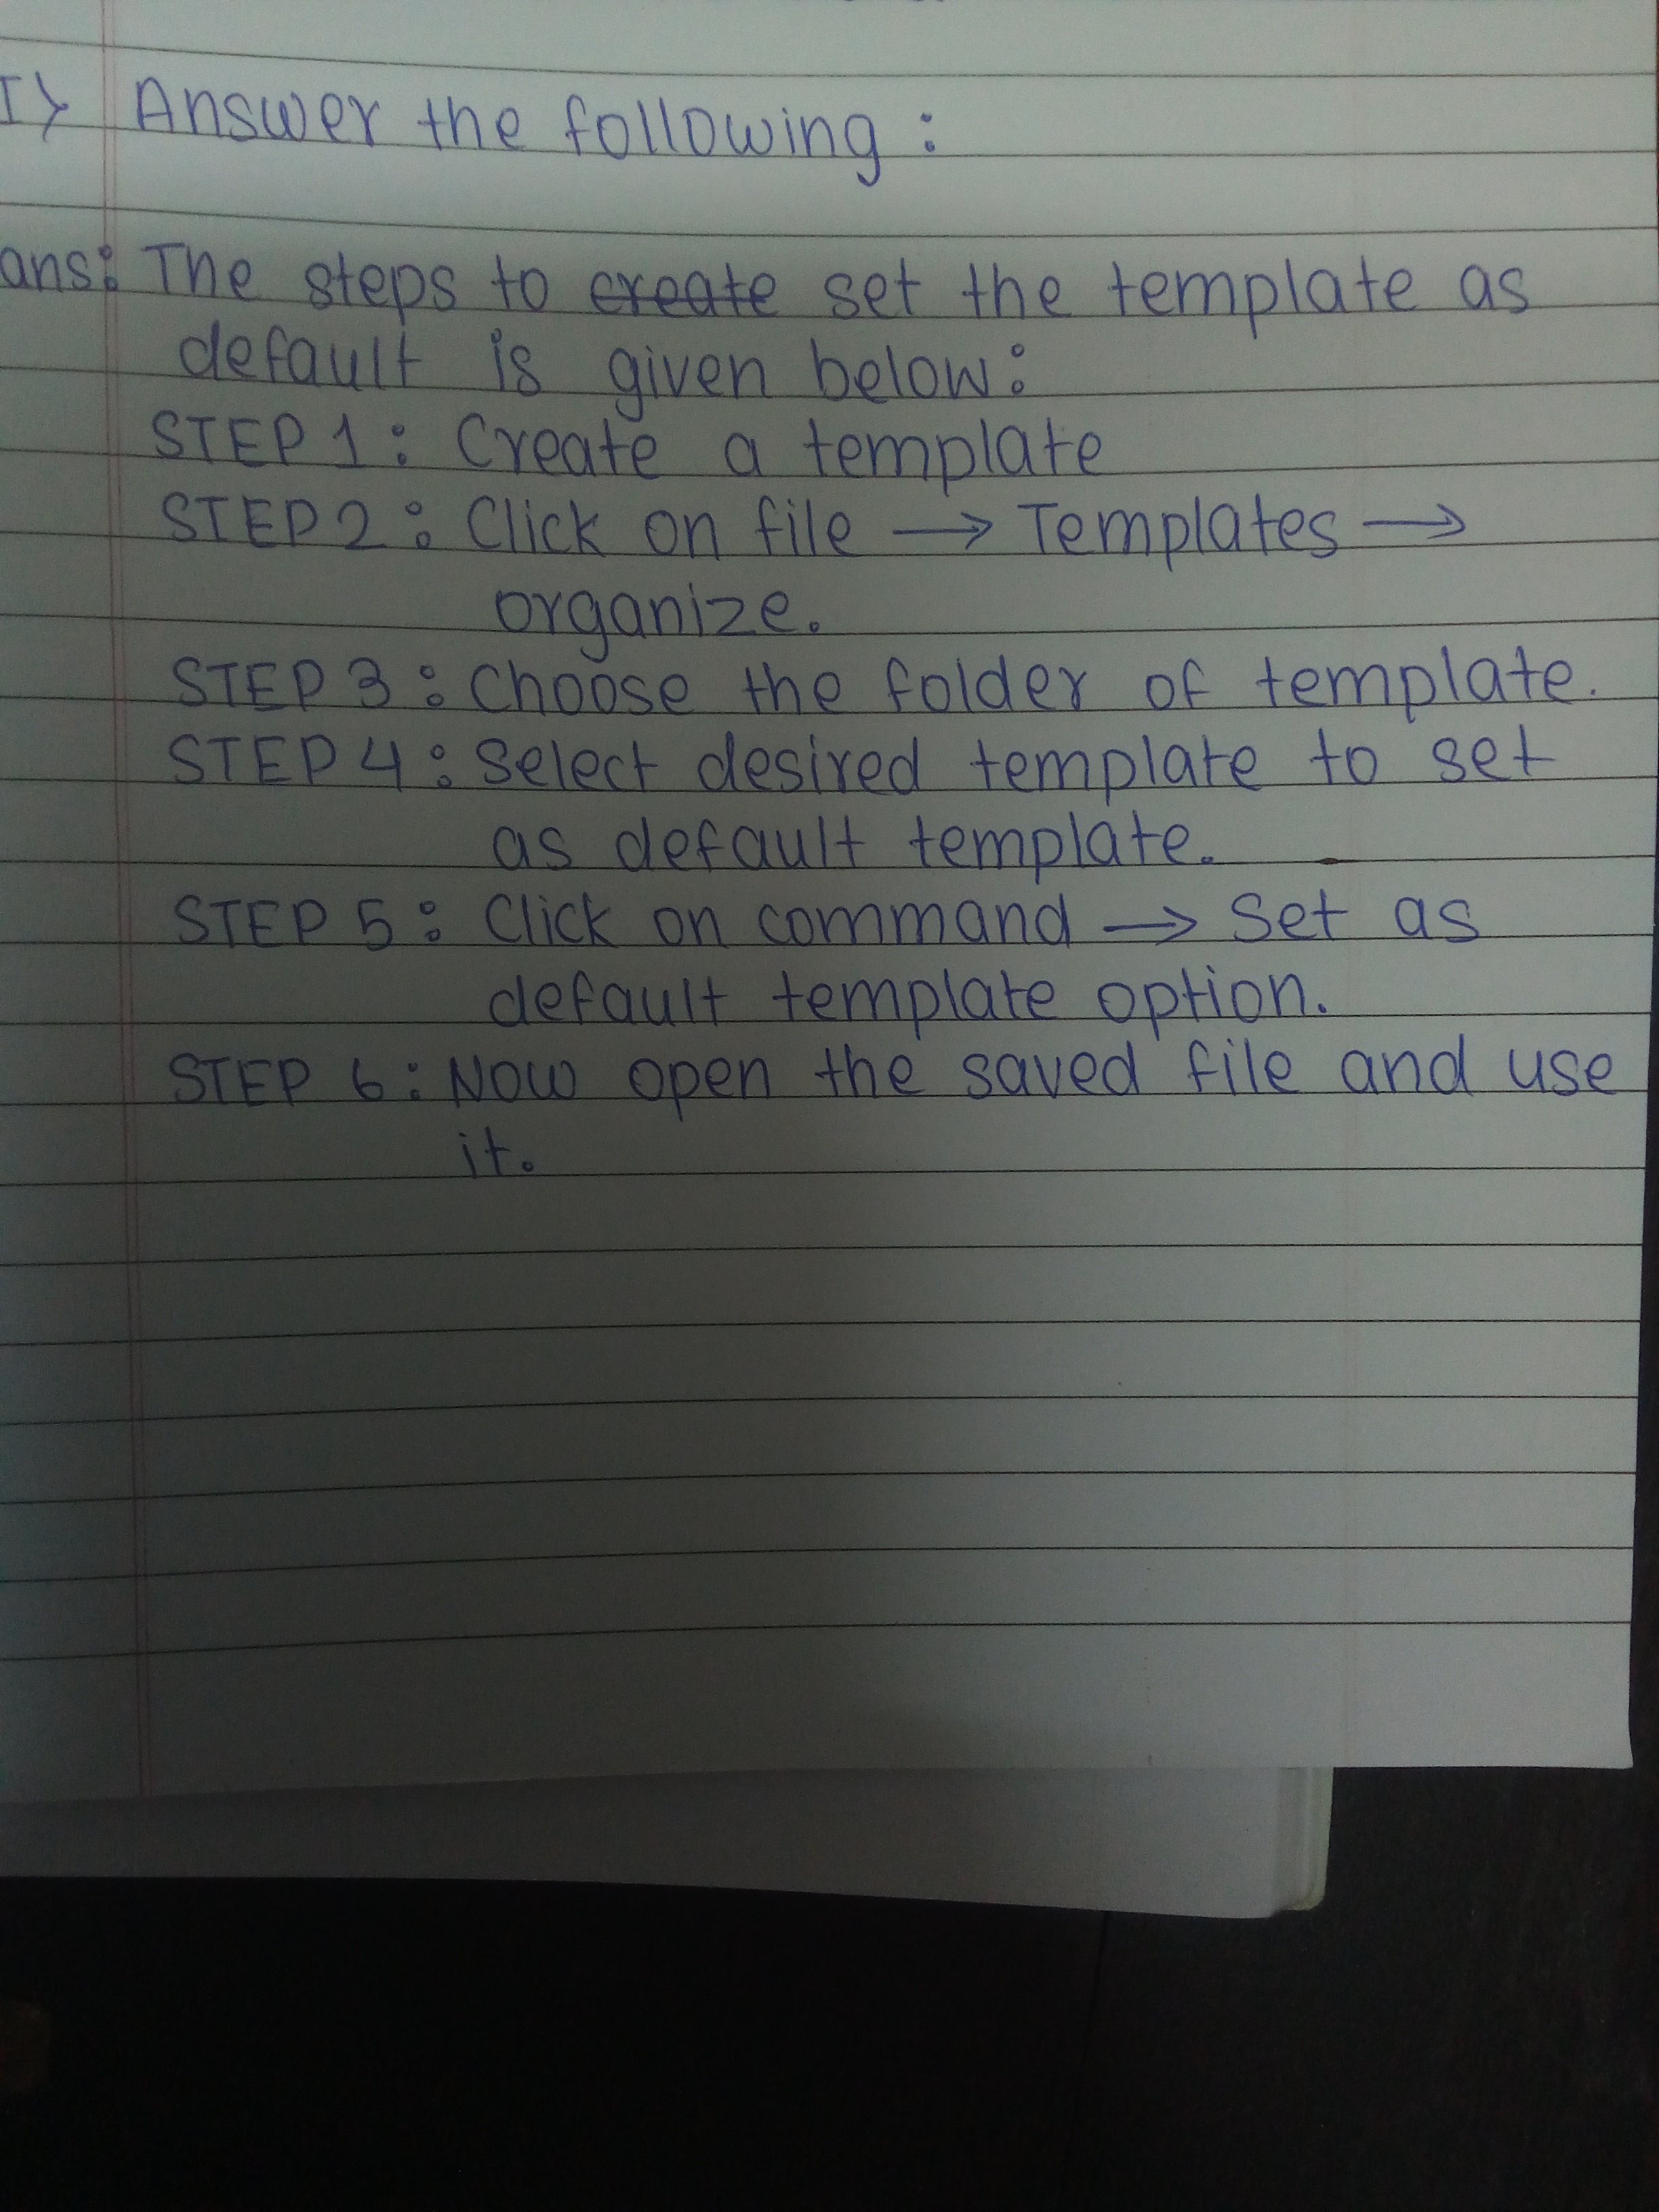 I> Answer the following :
ans: The steps to create set the template as
default is given below:
STEP 1 : Create a template
STEP 2 : Click on file → Templates →
organize.
STEP 3 : Choose the folder of template.
STEP 4 : Select desired template to set
as default template.
STEP 5 : Click on command → Set as
default template option.
STEP 6 : Now open the saved file and use
it.